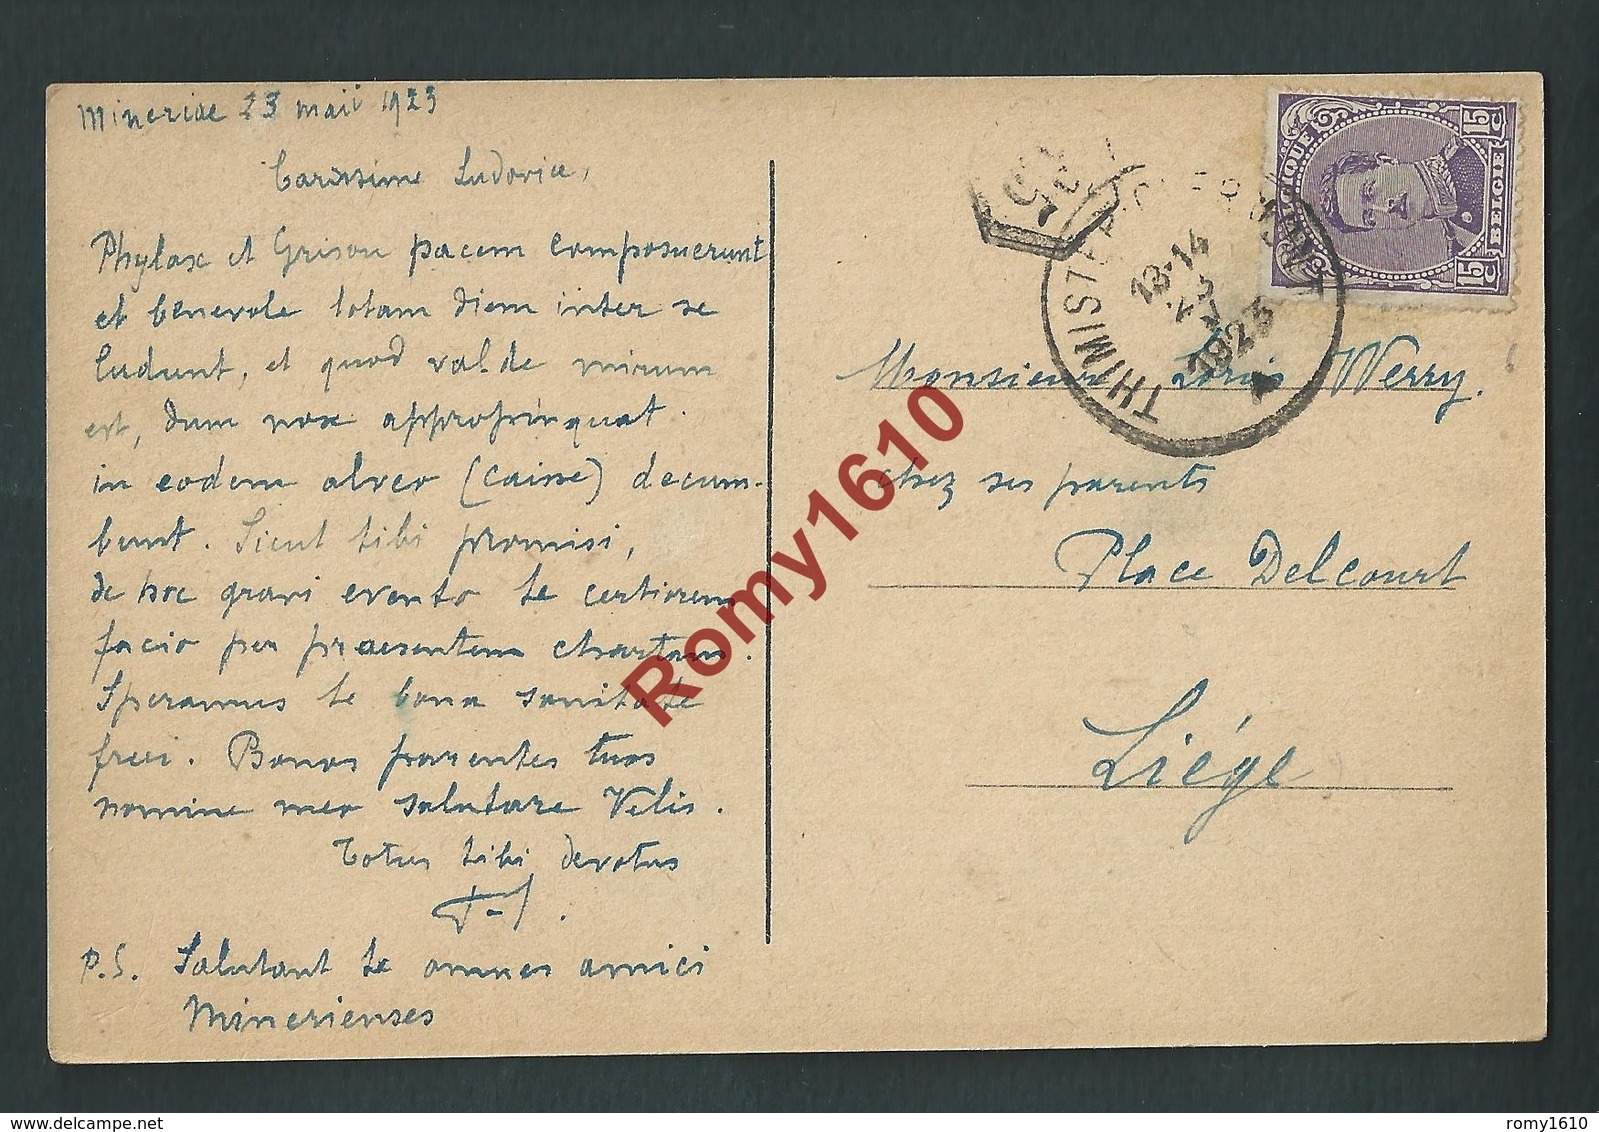 Mineriae 23 maii 1923
Carissime Ludovice,
Phylax et Grison pacem composuerunt
et benevole totam diem inter se
ludunt, et quod valde mirum
est, dum nox appropinquat
in eodem alveo (caisse) decum-
bunt. Sicut tibi promisi,
de hoc gravi evento te certiorem
facio per praesentem chartam.
Speramus te bona sanitate
frui. Bonos parentes tuos
nomine meo salutare Velis.
Totus tibi devotus
P.S. Salutant te omnes amici
Minerienses
BELGIQUE
BELGIË
15 C
15 C
THIMISTER
13-14
1923
Monsieur Louis Werry.
chez ses parents
Place Delcourt
Liége
Romy1610
delcampe.net
romy1610